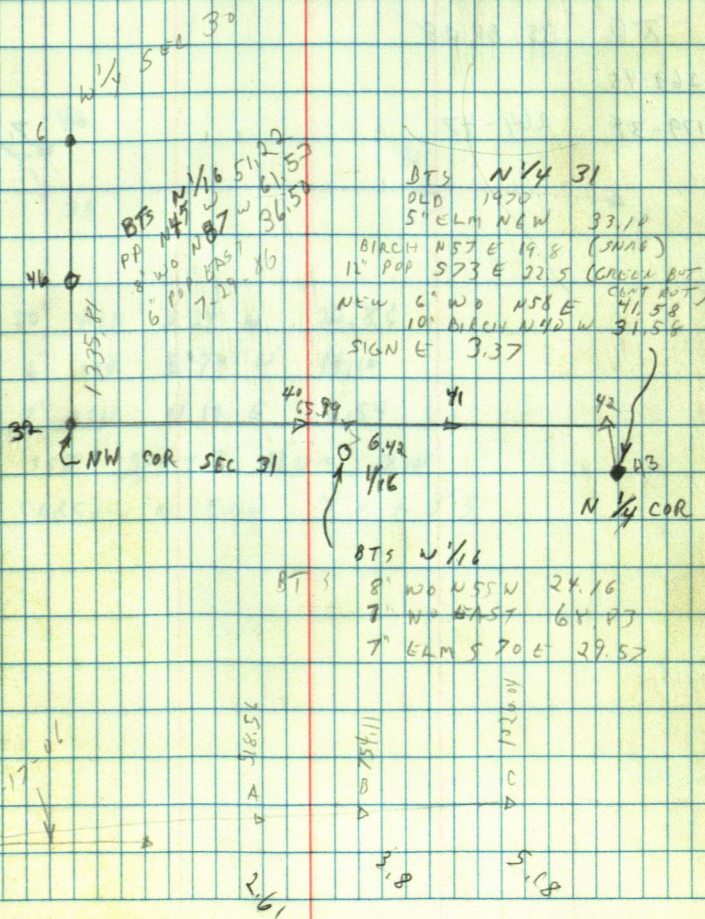 W 1/4 SEC 30
6
BTS N 1/16
PP N45 W 51.22
8" WO N87 W 61.53
6" POP EAST 36.50
7-29-86
46
1335.81
32
NW COR SEC 31
BTS N 1/4 31
OLD 1970
5" ELM N6W 33.10
BIRCH N57 E 19.8 (SNAG)
12" POP S73 E 22.5 (GREEN BUT
CENT ROT)
NEW 6" WO N58 E 41.58
10" BIRCH N40 W 31.58
SIGN E 3.37
40
65.99
41
42
6.42
1/16
43
N 1/4 COR
BTS W 1/16
BTS
8" WO N55W 24.16
7" WO EAST 68.83
7" ELM S 70 E 29.57
A 518.56
B 754.11
C
3.8
5.18
2.61